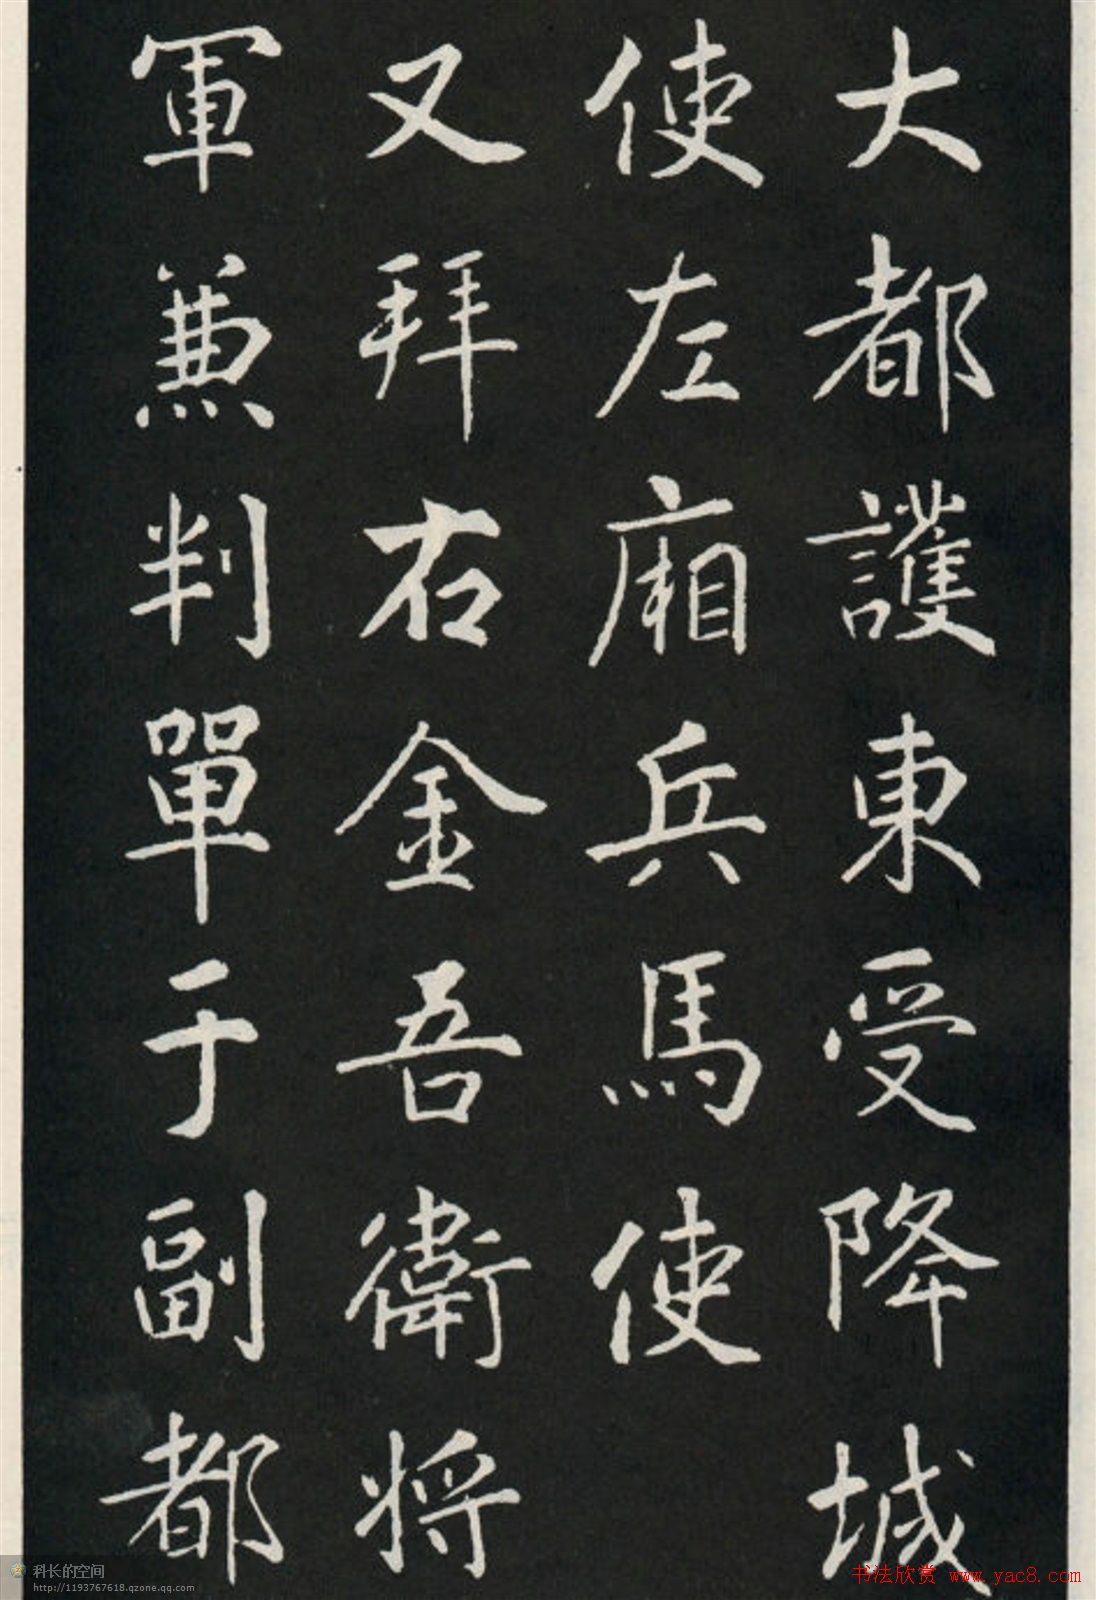 大都護東受降城
使左廂兵馬使
又拜右金吾衛将
軍兼判單于副都
科长的空间
http://1193767618.qzone.qq.com
书法欣赏 www.yac8.com